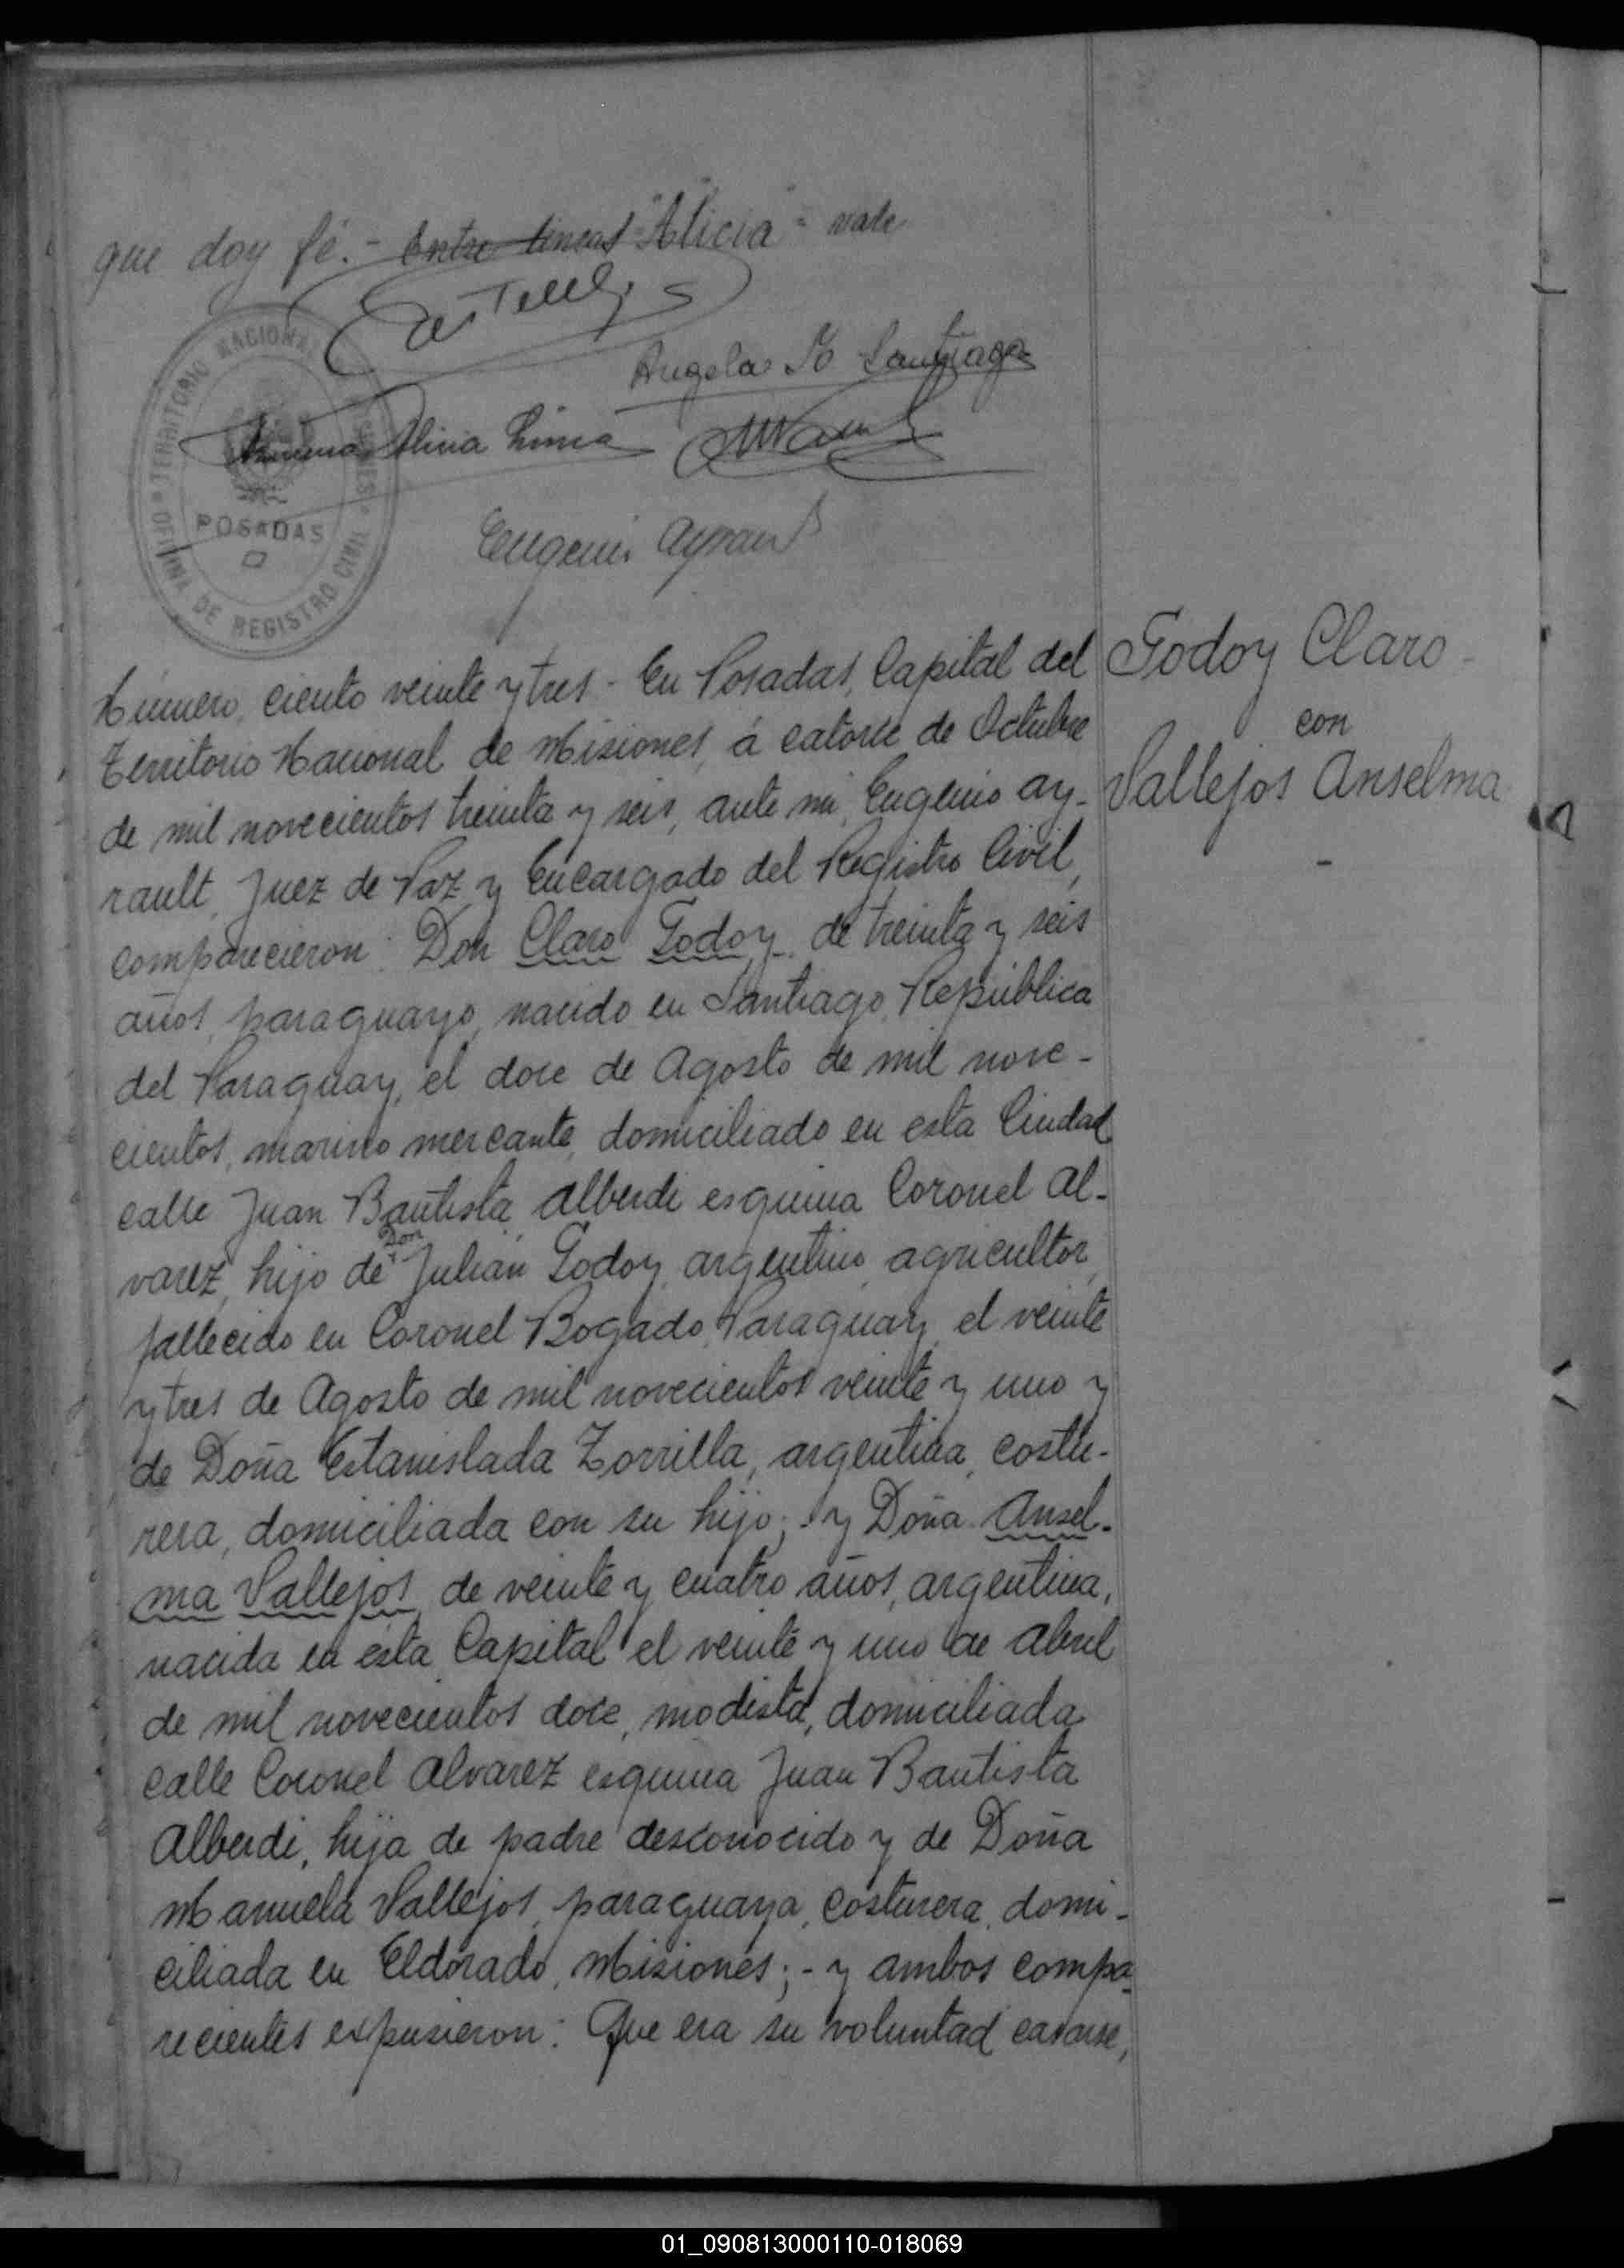 que doy fé.- Entre lineas "Alicia" - vale
Angela Santiago
Alicia
Eugenio Ayrault
TERRITORIO NACIONAL MISIONES
POSADAS
OFICINA DE REGISTRO CIVIL
Godoy Claro -
con
Vallejos Anselma
-
Número, ciento veinte y tres - En Posadas, Capital del
Territorio Nacional de Misiones, á catorce de Octubre
de mil novecientos treinta y seis, ante mi, Eugenio Ay-
rault, Juez de Paz y Encargado del Registro Civil,
comparecieron: Don Claro Godoy, de treinta y seis
años, paraguayo, nacido en Santiago, República
del Paraguay, el doce de Agosto de mil nove-
cientos, marino mercante, domiciliado en esta Ciudad
calle Juan Bautista Alberdi esquina Coronel Al-
varez, hijo de Don Julián Godoy, argentino, agricultor,
fallecido en Coronel Bogado, Paraguay, el veinte
y tres de Agosto de mil novecientos veinte y uno y
de Doña Estanislada Zorrilla, argentina, costu-
rera, domiciliada con su hijo; - y Doña Ansel-
ma Vallejos, de veinte y cuatro años, argentina,
nacida en esta Capital el veinte y uno de Abril
de mil novecientos doce, modista, domiciliada
calle Coronel Alvarez esquina Juan Bautista
Alberdi, hija de padre desconocido y de Doña
Manuela Vallejos, paraguaya, costurera, domi-
ciliada en Eldorado, Misiones; - y ambos compa-
recientes expusieron: Que era su voluntad casarse,
01_090813000110-018069